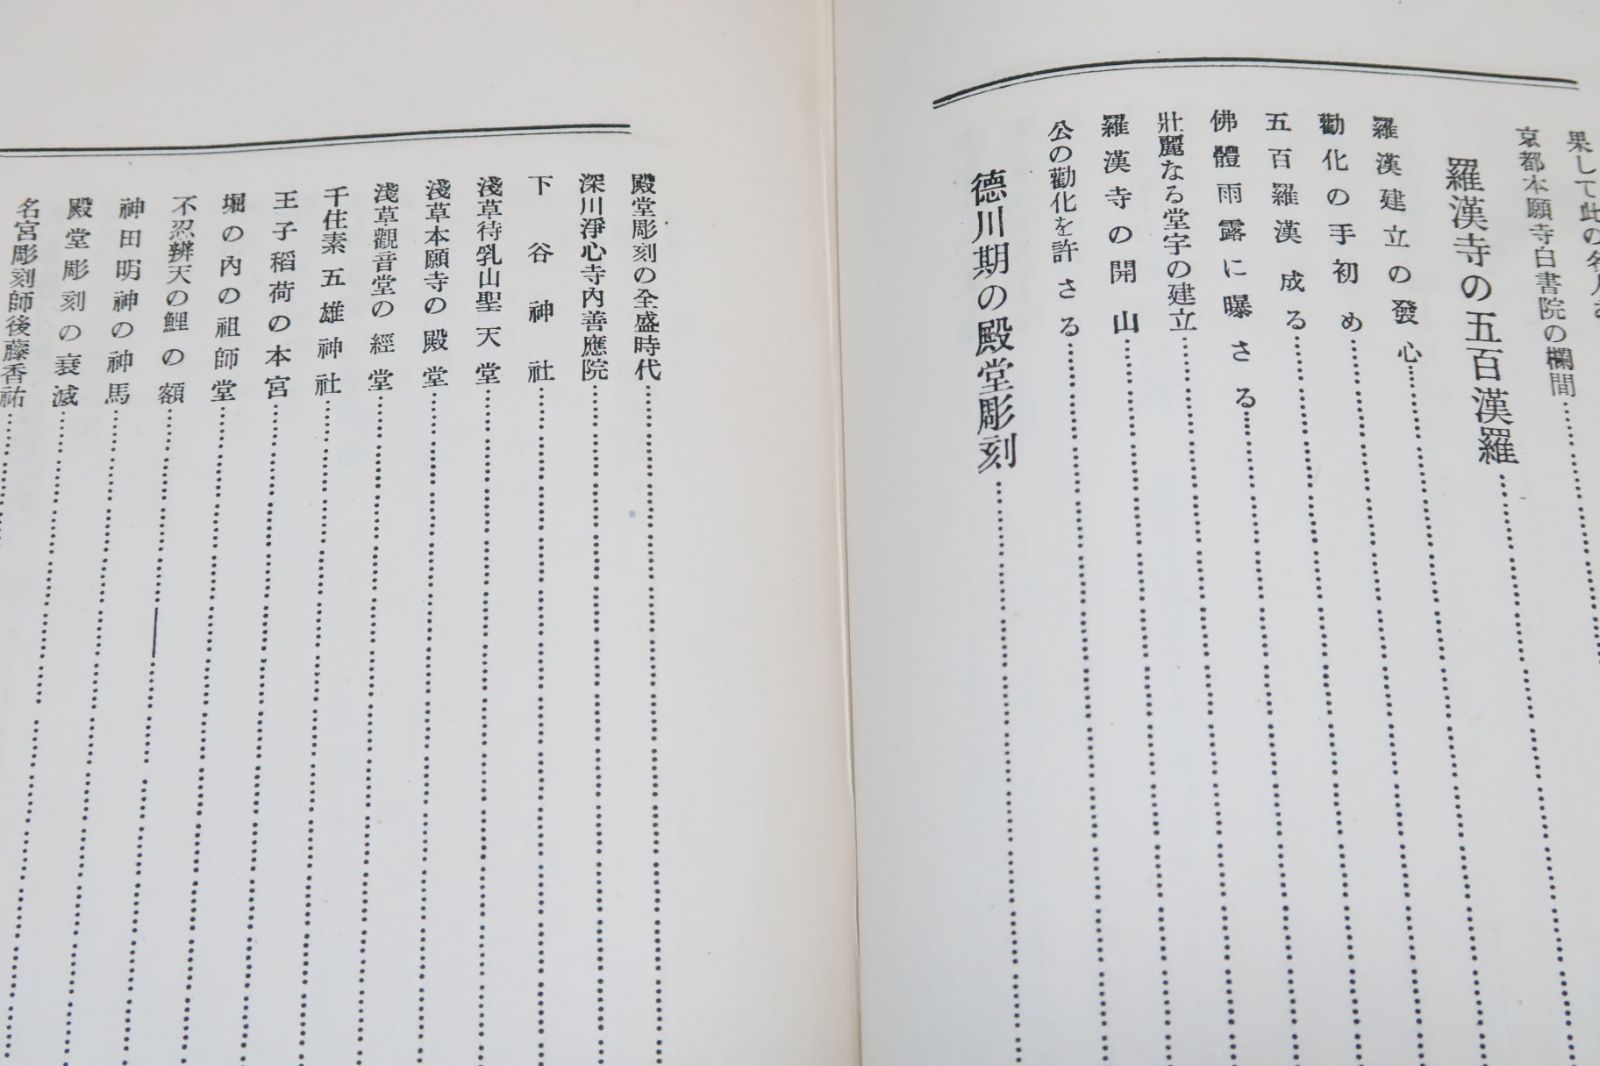 果して此の名人
京都本願寺白書院の欄間
羅漢寺の五百漢羅
羅漢建立の發心
勸化の手初め
五百羅漢成る
佛體雨露に曝さる
壯麗なる堂宇の建立
羅漢寺の開山
公の勸化を許さる
德川期の殿堂彫刻
殿堂彫刻の全盛時代
深川淨心寺內善應院
下谷神社
淺草待乳山聖天堂
淺草本願寺の殿堂
淺草觀音堂の經堂
千住素五雄神社
王子稻荷の本宮
堀の內の祖師堂
不忍辨天の鯉の額
神田明神の神馬
殿堂彫刻の衰滅
名宮彫刻師後藤香祐